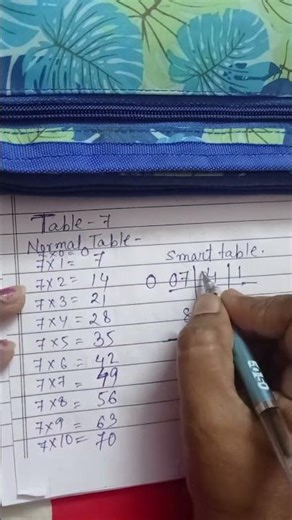 Table-7
Normal Table-
7x0=0
7x1= 7
7x2= 14
7x3= 21
7x4= 28
7x5= 35
7x6= 42
7x7= 49
7x8= 56
7x9= 63
7x10= 70
Smart table.
0 07
8